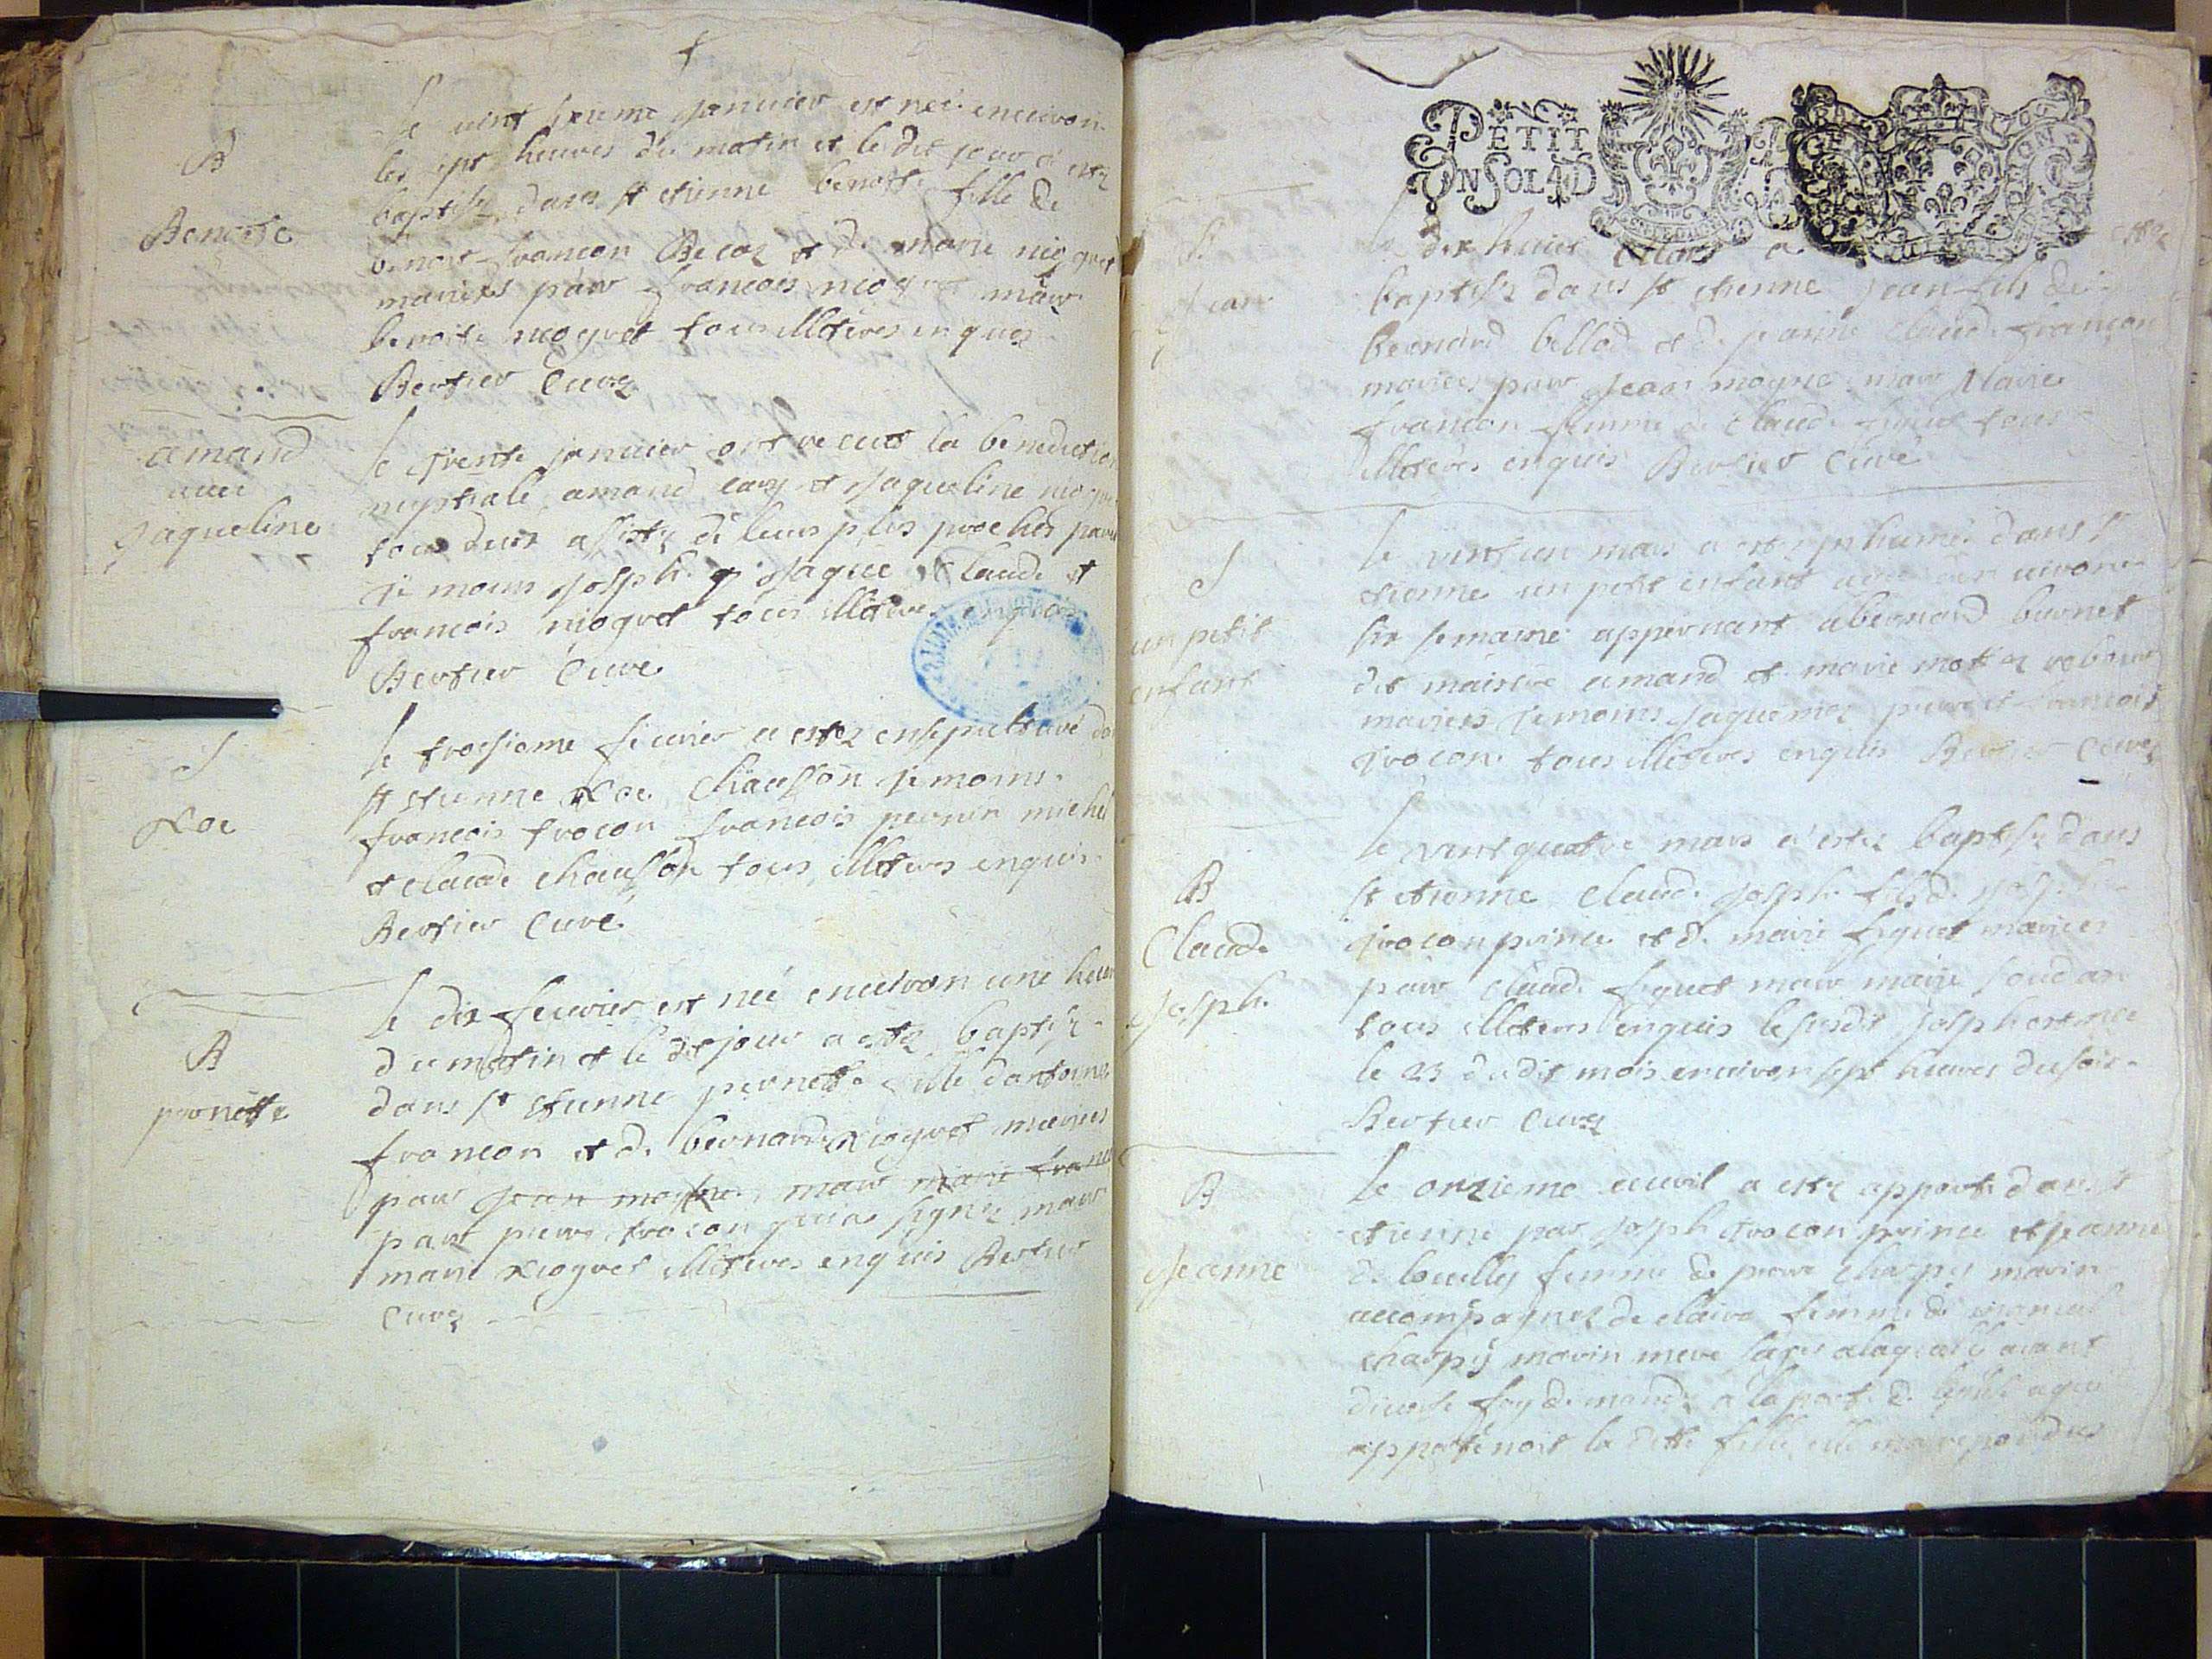 B
Benoite
le vint sixieme janvier est neé enuiron
les sept heures du matin et le dit jour a estez
baptisez dans st etienne benoite fille de
benoit francon Becoz et de marie niogret
mariers parr francois niogret marr
benoite niogret tous illiteres enquis
Bertier Curez
amand
avec
Jaqueline
le trente januier ont receut la benediction
nuptiale amand et Jaqueline
tous deux assistez de leurs plus proches
temoins Joseph Jaque Claude et
francois niogret tous illiteres enquis
Bertier Curé
S
le troisieme feurier a estez ensepulturé
st etienne Chausson temoins
francois trocon francois pernin michel
et claude chausson tous illiteres enquis
Bertier Curé
B
pernette
le dix feurier est neé enuiron une heur
du matin et le dit jour a estez baptisez
dans st etienne pernette fille dantoine
francon et de bernarde niogret mariers
parr Jean moyne marr marie franc
parr pierre trocon signez marr
marie niogret illiteres enquis Bertier
Curez
PETIT
UN SOL 4 D
B
Jean
le dix huitie mars a estez
baptisez dans st etienne Jean fils de
bernard bellod et de jeanne claude françon
mariers parr Jean moyne marr Marie
francon femme de claude figuet tous
illiteres enquis Bertier Curé
S
un petit
enfant
le vint un mars a estez inhumé dans st
etienne un petit enfant enuiron
six semaine appernant a bernard burnet
dit amand et marie
mariers temoins pierre et francois
trocon tous illiteres enquis Bertier Curez
B
Claude
Joseph
le vint quatre mars a estez baptisez dans
st etienne Claude Joseph fils de Joseph
trocon prince et de marie figuet mariers
parr claude figuet marr marie soudan
tous illiteres enquis le susdit Joseph est nee
le 23 dudit mois enuiron sept heures du soir
Bertier Curez
B
Jeanne
le onzieme auril a estez apporte dans st
etienne par Joseph trocon prince et jeanne
femme de pierre charpy marin
accompagnez de claire femme de
charpy marin mere sage a laquelle aiant
diuerse foy demandez a la porte de leglise a qui
appartenoit la ditte fille elle ma repondus